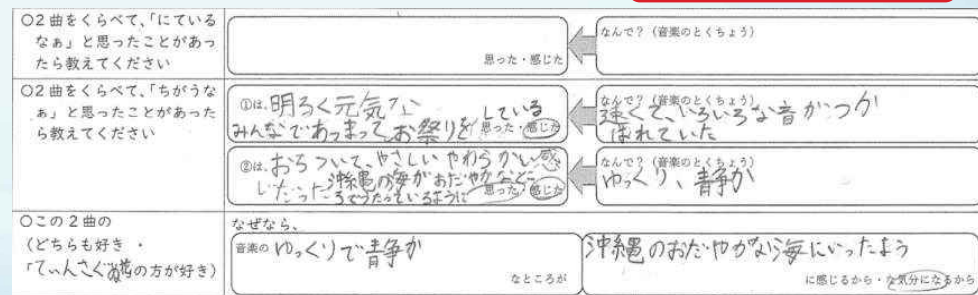 ○2曲をくらべて、「にている
なぁ」と思ったことがあっ
たら教えてください
思った・感じた
なんで?(音楽のとくちょう)
○2曲をくらべて、「ちがうな
ぁ」と思ったことがあった
ら教えてください
①は、明るく元気な
みんなであつまってお祭りをしている
思った・感じた
なんで?(音楽のとくちょう)
速くて、いろいろな音がつか
われていた
②は、おちついて、やさしいやわらかい感
じだった 沖縄の海がおだやかなとこ
ろでうたっているように
思った・感じた
なんで?(音楽のとくちょう)
ゆっくり、静か
○この2曲の
(どちらも好き ・
「てぃんさぐぬ花の方が好き)
なぜなら、
音楽の ゆっくりで静か
なところが
沖縄のおだやかな海にいったよう
に感じるから・な気分になるから